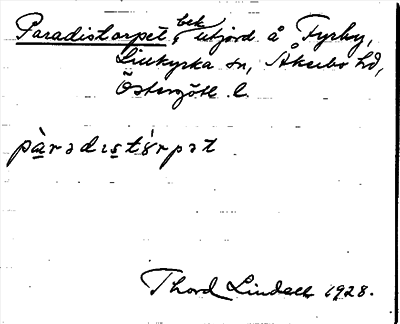 Paradistorpet, bek. utjord å Fyrby,
Ljurkyrka sn, Åkerbo hd,
Östergötl. l.
pàradıstórpət
Thord Lindell 1928.